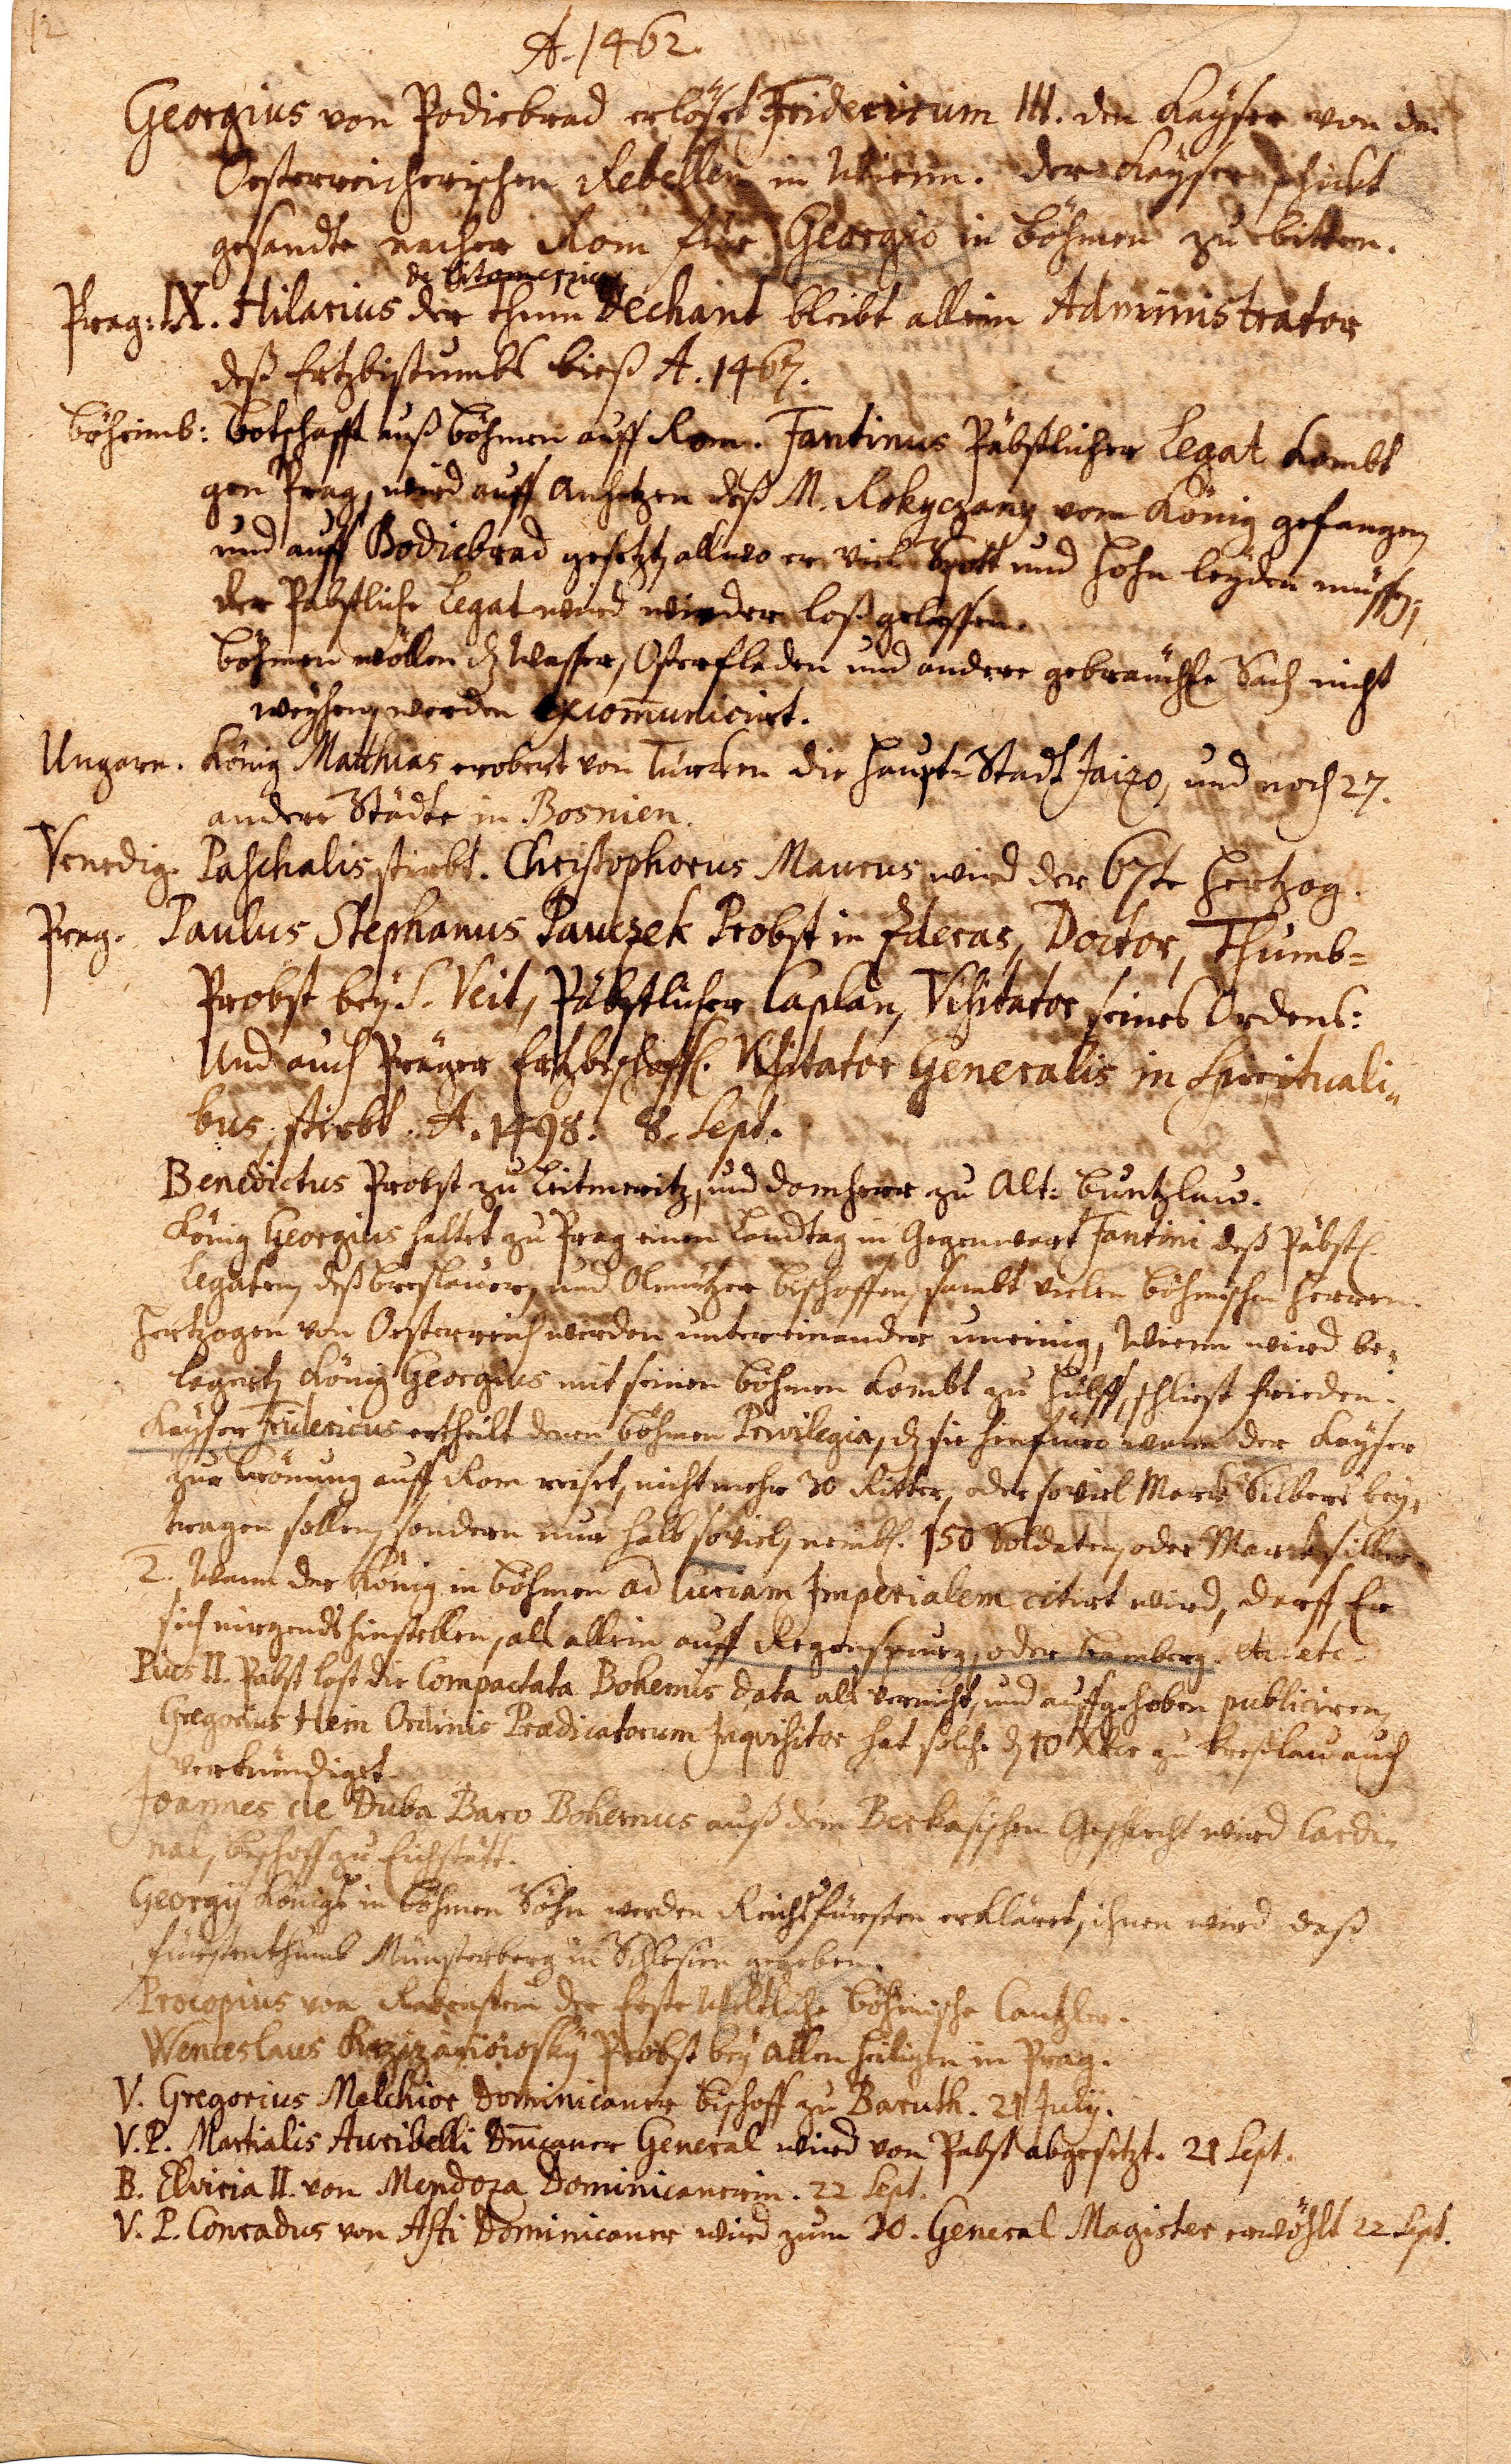 12
A. 1462.
Georgius von Podiebrad erlöset Fridericum III. den Kayser von den
Oesterreicherischen Rebellen in Wienn. der Kayser schickt
gesandte nacher Rom für Georgio in Böhmen zu bitten.
de Litomerzicz
Prag: IX. Hilarius der thum Dechant bleibt allein Administrator
deß Ertzbistumbs bieß A. 1467.
Böheimb: Botschafft auß Böhmen auff Rom. Fantinus Päbstlicher Legat kombt
gen Prag, wird auff anhetzen deß M. Rokyczany vom König gefangen,
und auff Bodiebrad gesetzt, allwo er viel Spott und Hohn leyden müssen,
der Pabstliche Legat wird wieder loß gelassen.
Böhmen wöllen dz Wasser, Osterfladen und andere gebräuchse Sach nicht
weyhen, werden excom̄unicirt.
Ungarn. König Matthias erobert von Türcken die Haupt-Stadt Jaizo, und noch 27.
andere Städte in Bosnien.
Venedig. Paschalis stirbt. Christophorus Maurus wird der 67te Hertzog.
Prag. Paulus Stephanus Pauczek Probst in Zderas, Doctor, Thumb-
Probst bey S. Veit, Päbstlicher Caplan, Visitator seines Ordens:
Und auch Präger Ertzbischoffl. Visitator Generalis in Spirituali-
bus, stirbt. A. 1498. 8. Sept.
Benedictus Probst zu Leitmeritz, und Domherr zu Alt: Buntzlau.
König Georgius haltet zu Prag einen Landtag in Gegenwart Fantini deß Päbstl.
Legaten, deß Breslauer, und Olmützer Bischoffen, sambt vielen Böhmischen Herren.
Hertzogen von Oesterreich werden untereinander uneinig, Wienn wird be-
legert, König Georgius mit seinen Böhmen kombt zu Hülff, schliest Frieden.
Kayser Fridericus ertheilt denen Böhmen Privilegia, dz sie hinfüro wann der Kayser
zur Crönung auff Rom reiset, nicht mehr 30 Ritter, oder soviel Marck Silbers bey-
tragen sollen, sondern nur halb soviel, nembl. 150 Soldaten, oder Marck silber.
2. Wann der König in Böhmen ad Curiam Imperialem citirt wird, darff Er
sich nirgends hinstellen, als allein auff Regenspurg, oder Bamberg. etc. etc.
Pius II. Pabst lest die Compactata Bohemis data als vernicht, und auffgehoben publiciren,
Gregorius Hein Ordinis Prædicatorum Inqvisitor hat solche dz 10 Xbr zu Breßlau auch
verkündiget.
Joannes de Duba Baro Bohemus auß dem Berkasischen Geschlecht wird Cardi-
nal, Bischoff zu Eichstätt.
Georgij Königs in Böhmen Söhn werden Reichsfürsten erkläret, ihnen wird daß
fürstenthumb Münsterberg in Schlesien gegeben.
Procopius von Rabenstein der Erste Weltliche Böhmische Cantzler.
Wenceslaus Probst bey Allen Heiligen in Prag.
V. Gregorius Melchior Dominicaner Bischoff zu Baruth. 21 July.
V. P. Martialis Auribelli Dnīcaner General wird von Pabst abgesetzt. 21 Sept.
B. Elvicia II. von Mendoza Dominicanerin. 22 Sept.
V. P. Conradus von Asti Dominicaner wird zum 30. General Magister erwöhlt 22 Sept.